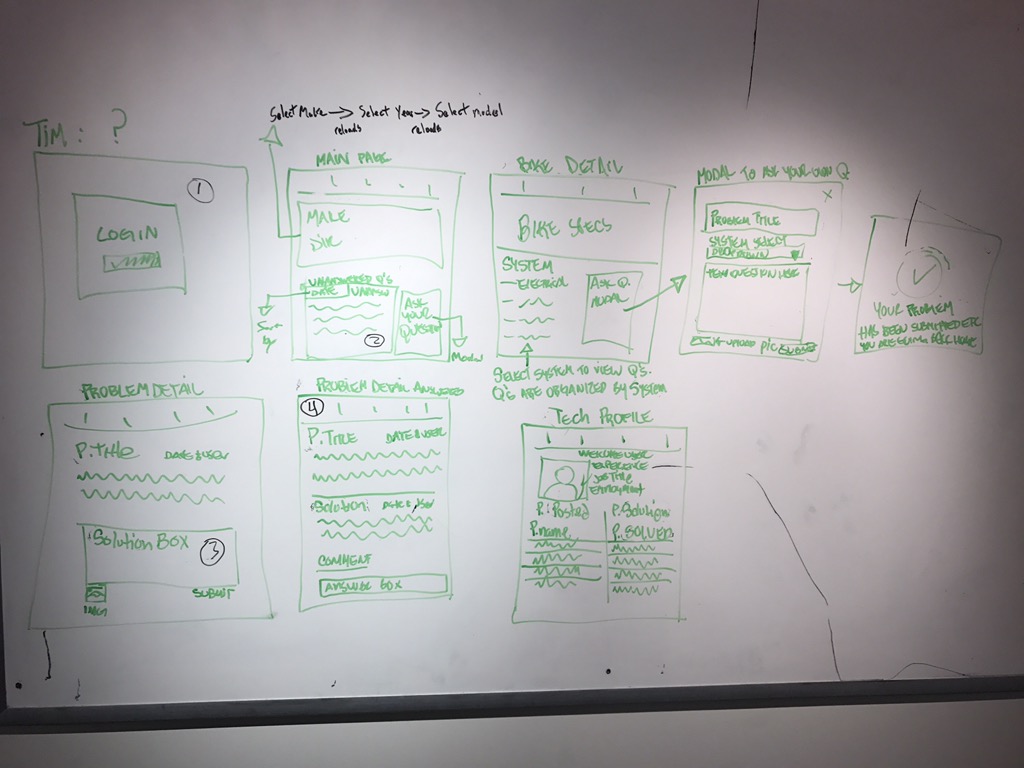 Select Make → Select Year → Select model
reloads reloads
TIM: ?
1
LOGIN
MAIN PAGE
MAKE
DIR
UNANSWERED Q's
DATE UNANSW
ASK
YOUR
QUESTION
2
Sort
by
Modal
BIKE DETAIL
BIKE SPECS
SYSTEM
- ELECTRICAL
ASK Q.
MODAL
Select system to view Q's.
Q's ARE ORGANIZED BY SYSTEM
MODAL TO ASK YOUR OWN Q
X
PROBLEM TITLE
SYSTEM SELECT
DROPDOWN
YOUR QUESTION HERE
UPLOAD PIC SUBMIT
YOUR PROBLEM
HAS BEEN SUBMITTED ETC
YOU ARE
PROBLEM DETAIL
P. Title DATE & USER
Solution BOX
3
IMG
SUBMIT
PROBLEM DETAIL ANSWERED
4
P. TITLE DATE & USER
Solution: DATE & USER
COMMENT
ANSWER BOX
TECH PROFILE
WELCOME USER
EXPERIENCE
JOB TITLE
EMPLOYMENT
P. Posted P. Solution
P. name P. SOLVER